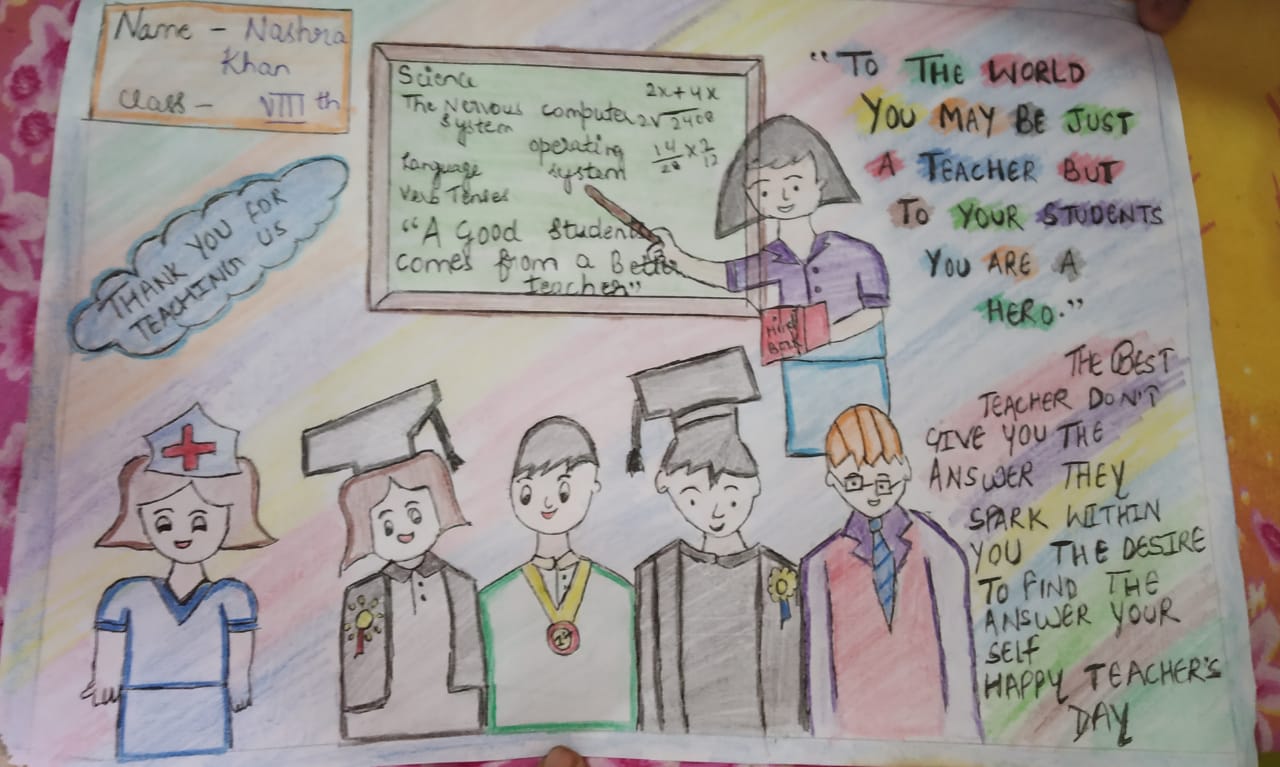 Name - Nashra
Khan
Class - VIII th
THANK YOU FOR
TEACHING US
Science
The Nervous
System
Language
Verb Tenses
computer
operating
system
2x+4x
2√2408
14/28 × 2/12
"A Good Students
comes from a Better
teacher"
"TO THE WORLD
YOU MAY BE JUST
A TEACHER BUT
TO YOUR STUDENTS
YOU ARE A
HERO."
THE BEST
TEACHER DON'T
GIVE YOU THE
ANSWER THEY
SPARK WITHIN
YOU THE DESIRE
TO FIND THE
ANSWER YOUR
SELF
HAPPY TEACHER'S
DAY